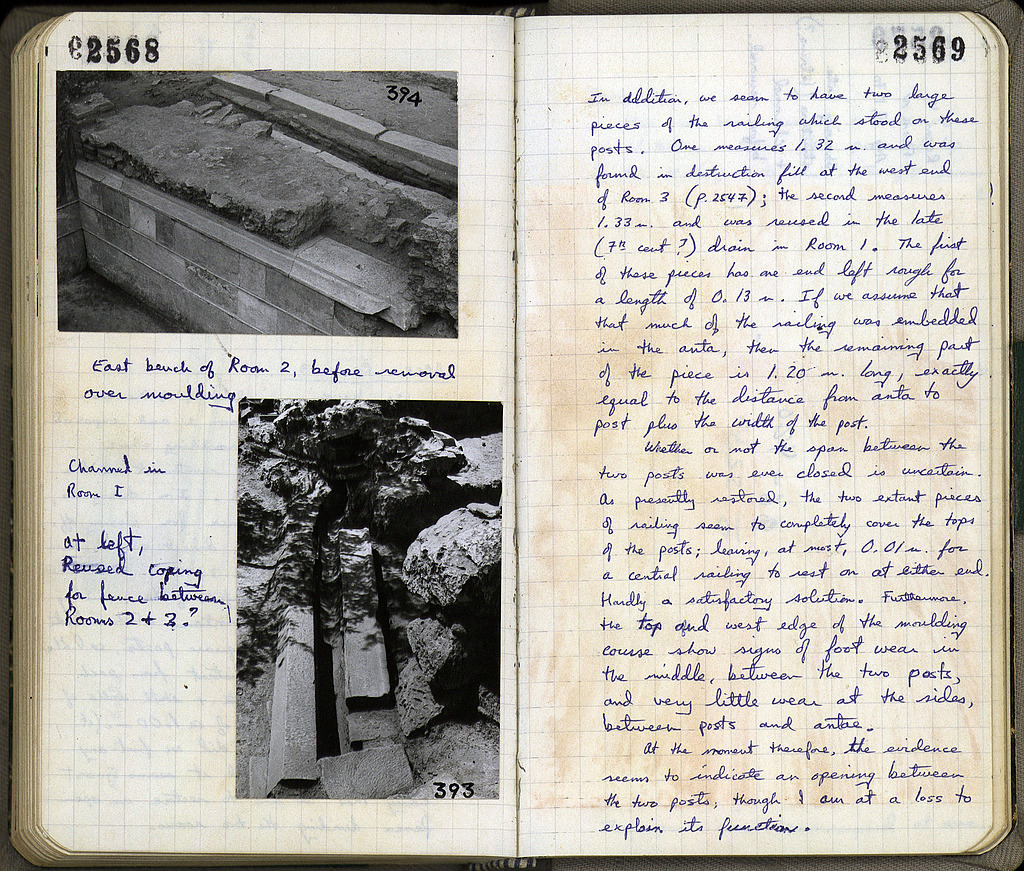 2568
394
East bench of Room 2, before removal
over moulding
Channel in
Room I
at left,
Reused coping
for fence between
Rooms 2 + 3?
393
2569
In addition, we seem to have two large
pieces of the railing which stood on these
posts. One measures 1.32 m. and was
found in destruction fill at the west end
of Room 3 (p. 2547); the second measures
1.33 m. and was reused in the late
(7th cent?) drain in Room 1. The first
of these pieces has one end left rough for
a length of 0.13 m. If we assume that
that much of the railing was embedded
in the anta, then the remaining part
of the piece is 1.20 m. long, exactly
equal to the distance from anta to
post plus the width of the post.
Whether or not the span between the
two posts was ever closed is uncertain.
As presently restored, the two extant pieces
of railing seem to completely cover the tops
of the posts; leaving, at most, 0.01 m. for
a central railing to rest on at either end.
Hardly a satisfactory solution. Furthermore,
the top and west edge of the moulding
course show signs of foot wear in
the middle, between the two posts,
and very little wear at the sides,
between posts and antae.
At the moment therefore, the evidence
seems to indicate an opening between
the two posts, though I am at a loss to
explain its function.